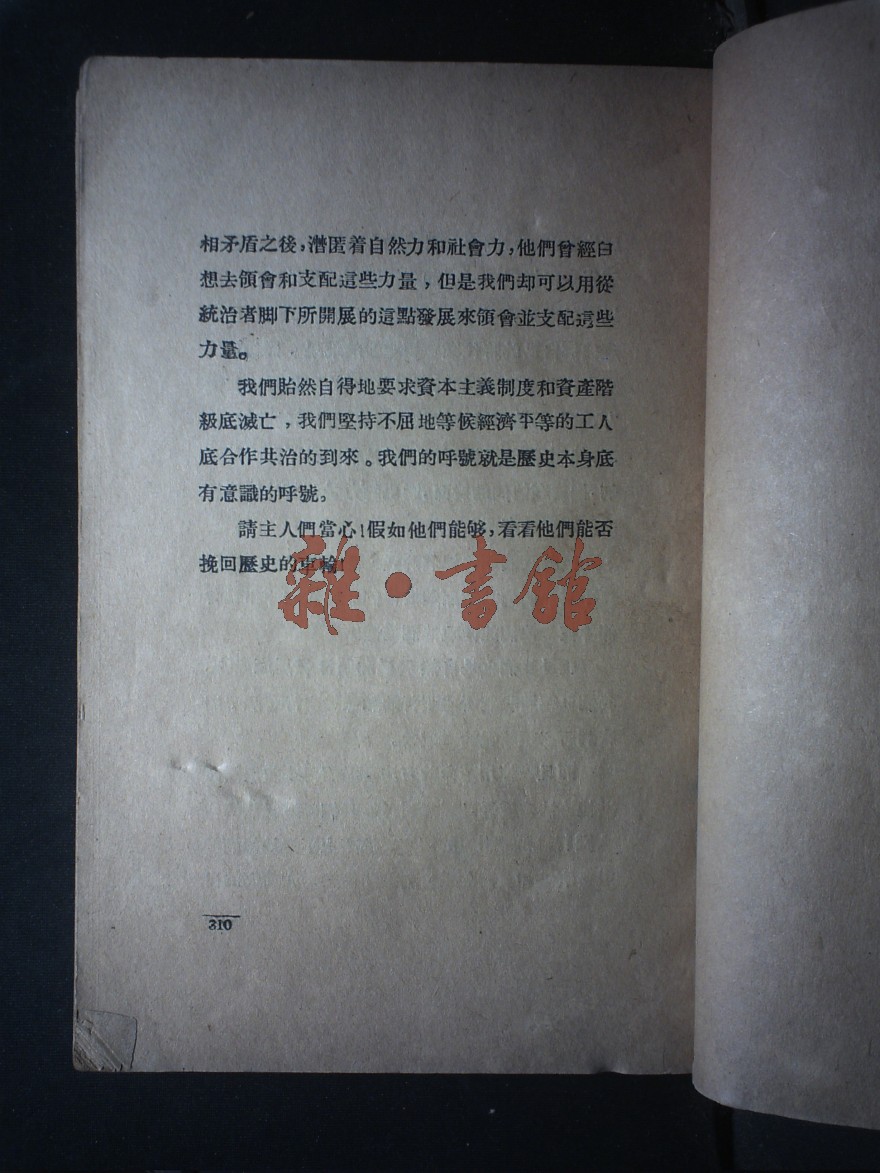 相矛盾之後，潛匿着自然力和社會力，他們曾經曰
想去領會和支配這些力量，但是我們却可以用從
統治者脚下所開展的這點發展來領會並支配這些
力量。
我們貽然自得地要求資本主義制度和資產階
級底滅亡，我們堅持不屈地等候經濟平等的工人
底合作共治的到來。我們的呼號就是歷史本身底
有意識的呼號。
請主人們當心！假如他們能够，看看他們能否
挽回歷史的車輪！
雜·書館
310